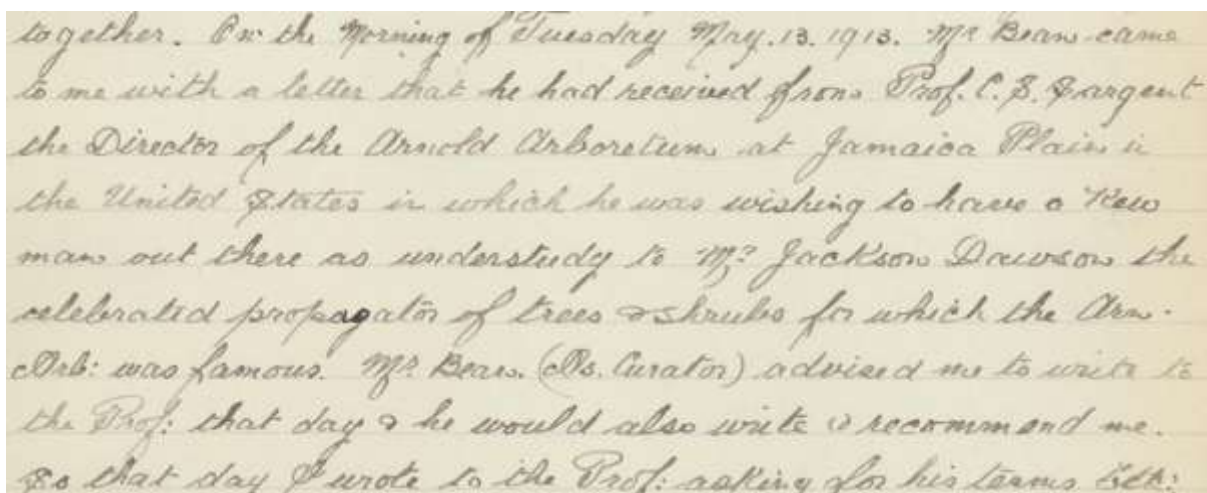 together. On the Morning of Tuesday May. 13. 1913. Mr Bean came
to me with a letter that he had received from Prof. C. S. Sargent
the Director of the Arnold Arboretum at Jamaica Plain in
the United States in which he was wishing to have a Kew
man out there as understudy to Mr Jackson Dawson the
celebrated propagator of trees & shrubs for which the Arn.
Arb: was famous. Mr Bean. (As. Curator) advised me to write to
the Prof: that day & he would also write & recommend me.
So that day I wrote to the Prof: asking for his terms Etc: